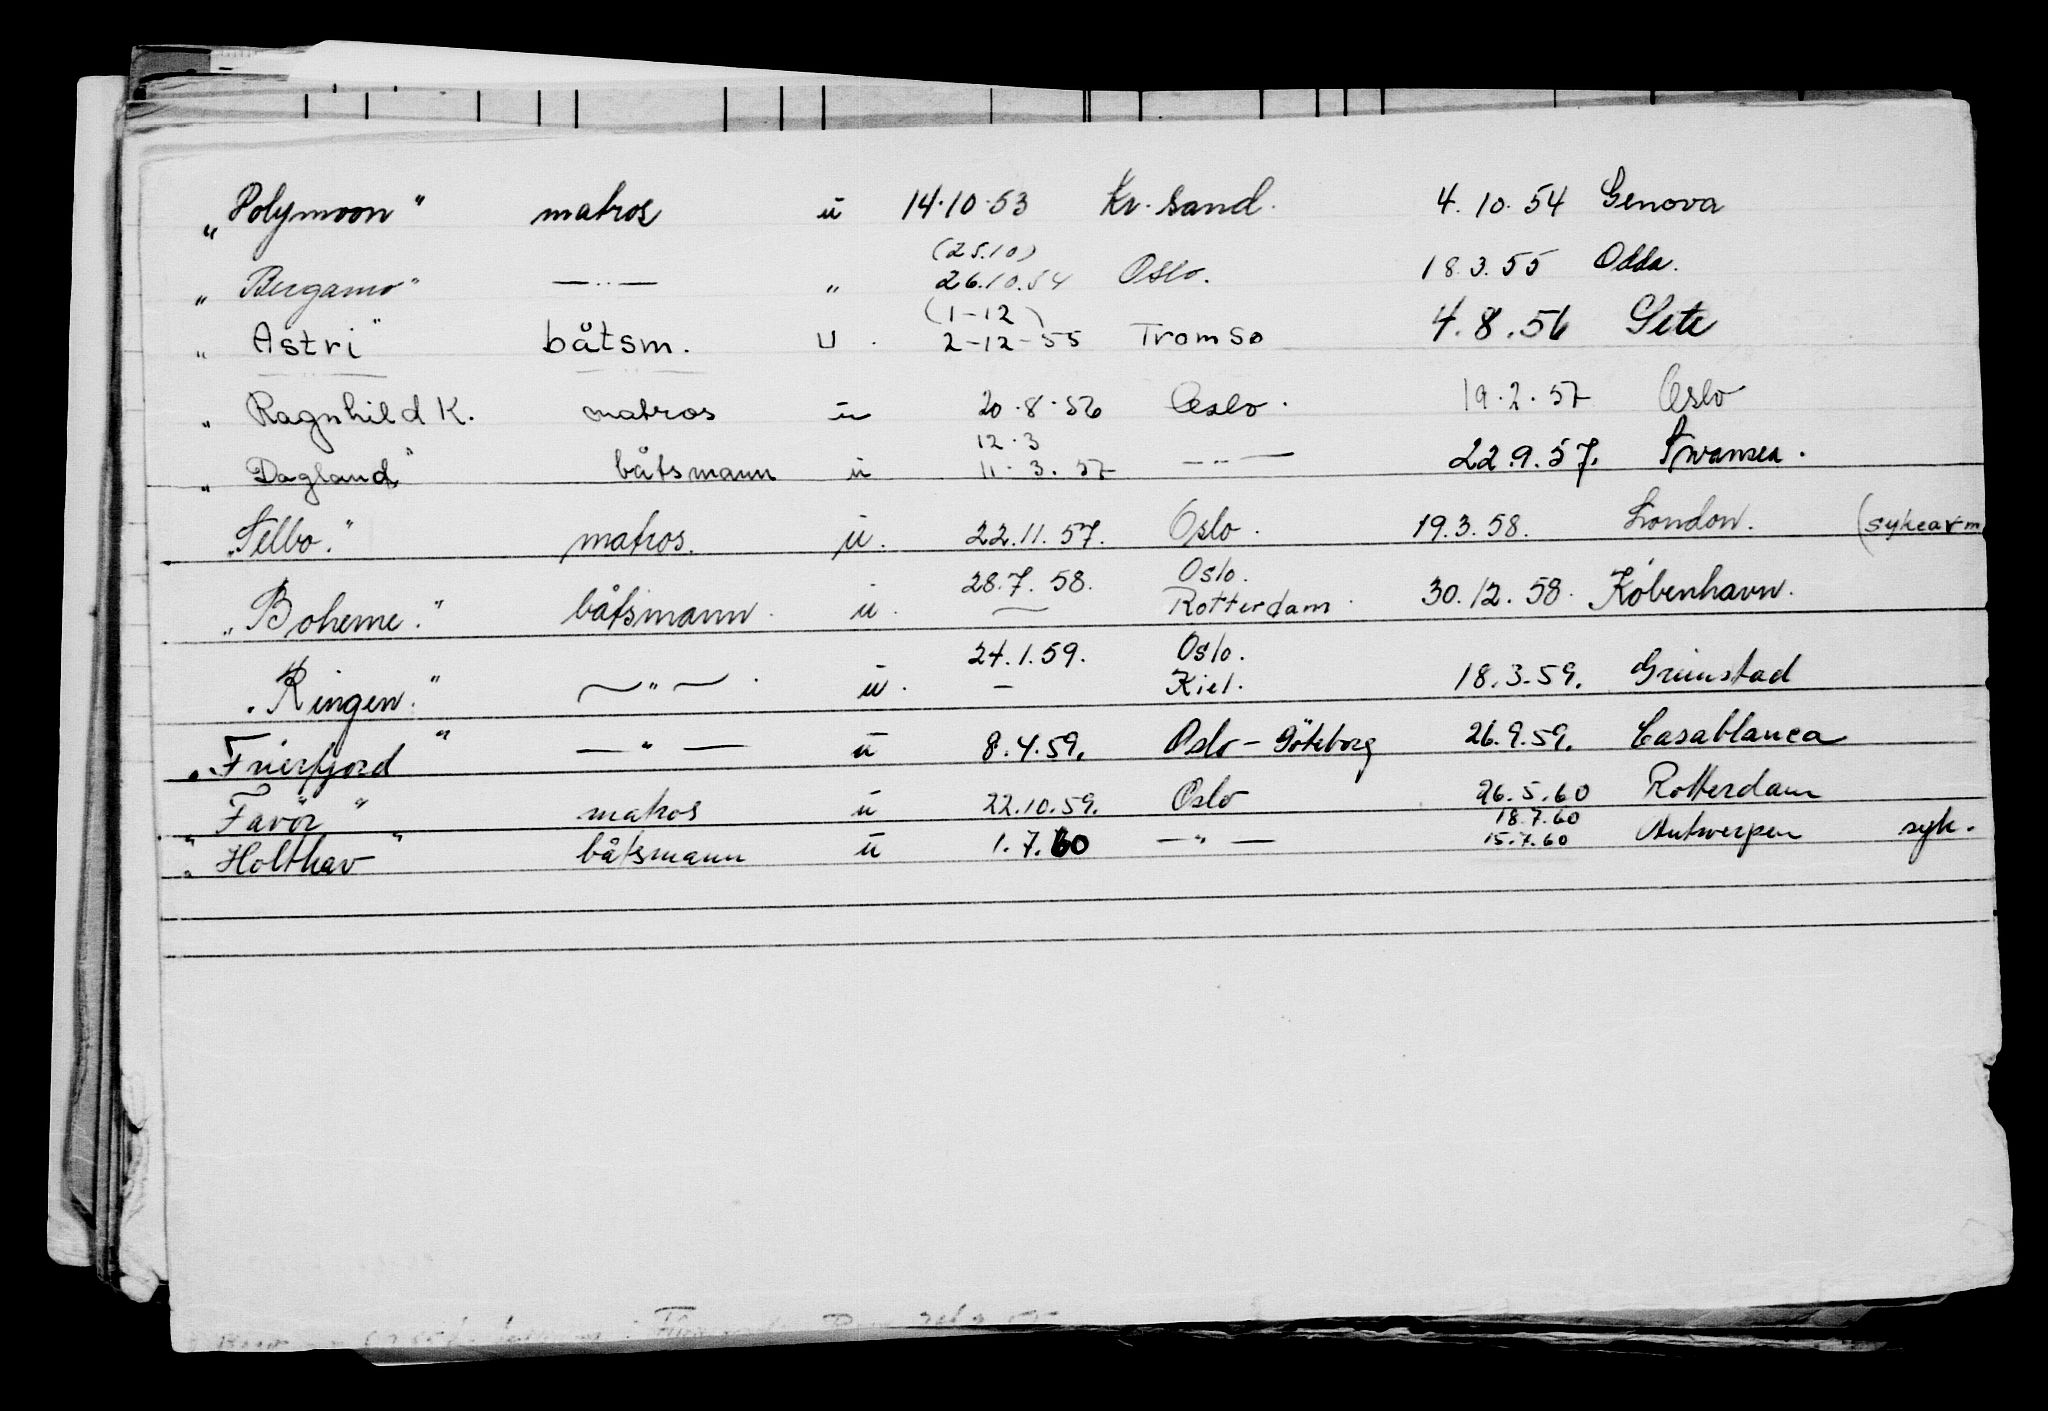 „Polymoon" matros ū 14.10.53 Kr.sand. 4.10.54 Genova
(25.10)
„Bergamo" —"— " 26.10.54 Oslo. 18.3.55 Odda.
(1-12)
„Astri" båtsm. u. 2-12-55 Tromsø 4.8.56 Sete
„Ragnhild K. matros ū 20.8.56 Oslo. 19.2.57 Oslo
12.3
„Dagland" båtsmann ū 11.3.57 —"— 22.9.57. Swansea.
„Selbo." matros. ū. 22.11.57. Oslo. 19.3.58. London. (sykearm
28.7.58. Oslo.
„Boheme." båtsmann. ū. — Rotterdam. 30.12.58. København.
24.1.59. Oslo.
„Ringen." —"—. ū. — Kiel. 18.3.59. Grimstad
„Frierfjord" —"— ū 8.4.59. Oslo-Göteborg 26.9.59. Casablanca
„Favör" matros ū 22.10.59. Oslo 26.5.60 Rotterdam
18.7.60
„Holthav" båtsmann ū 1.7.60 —"— 15.7.60 Antwerpen syk.